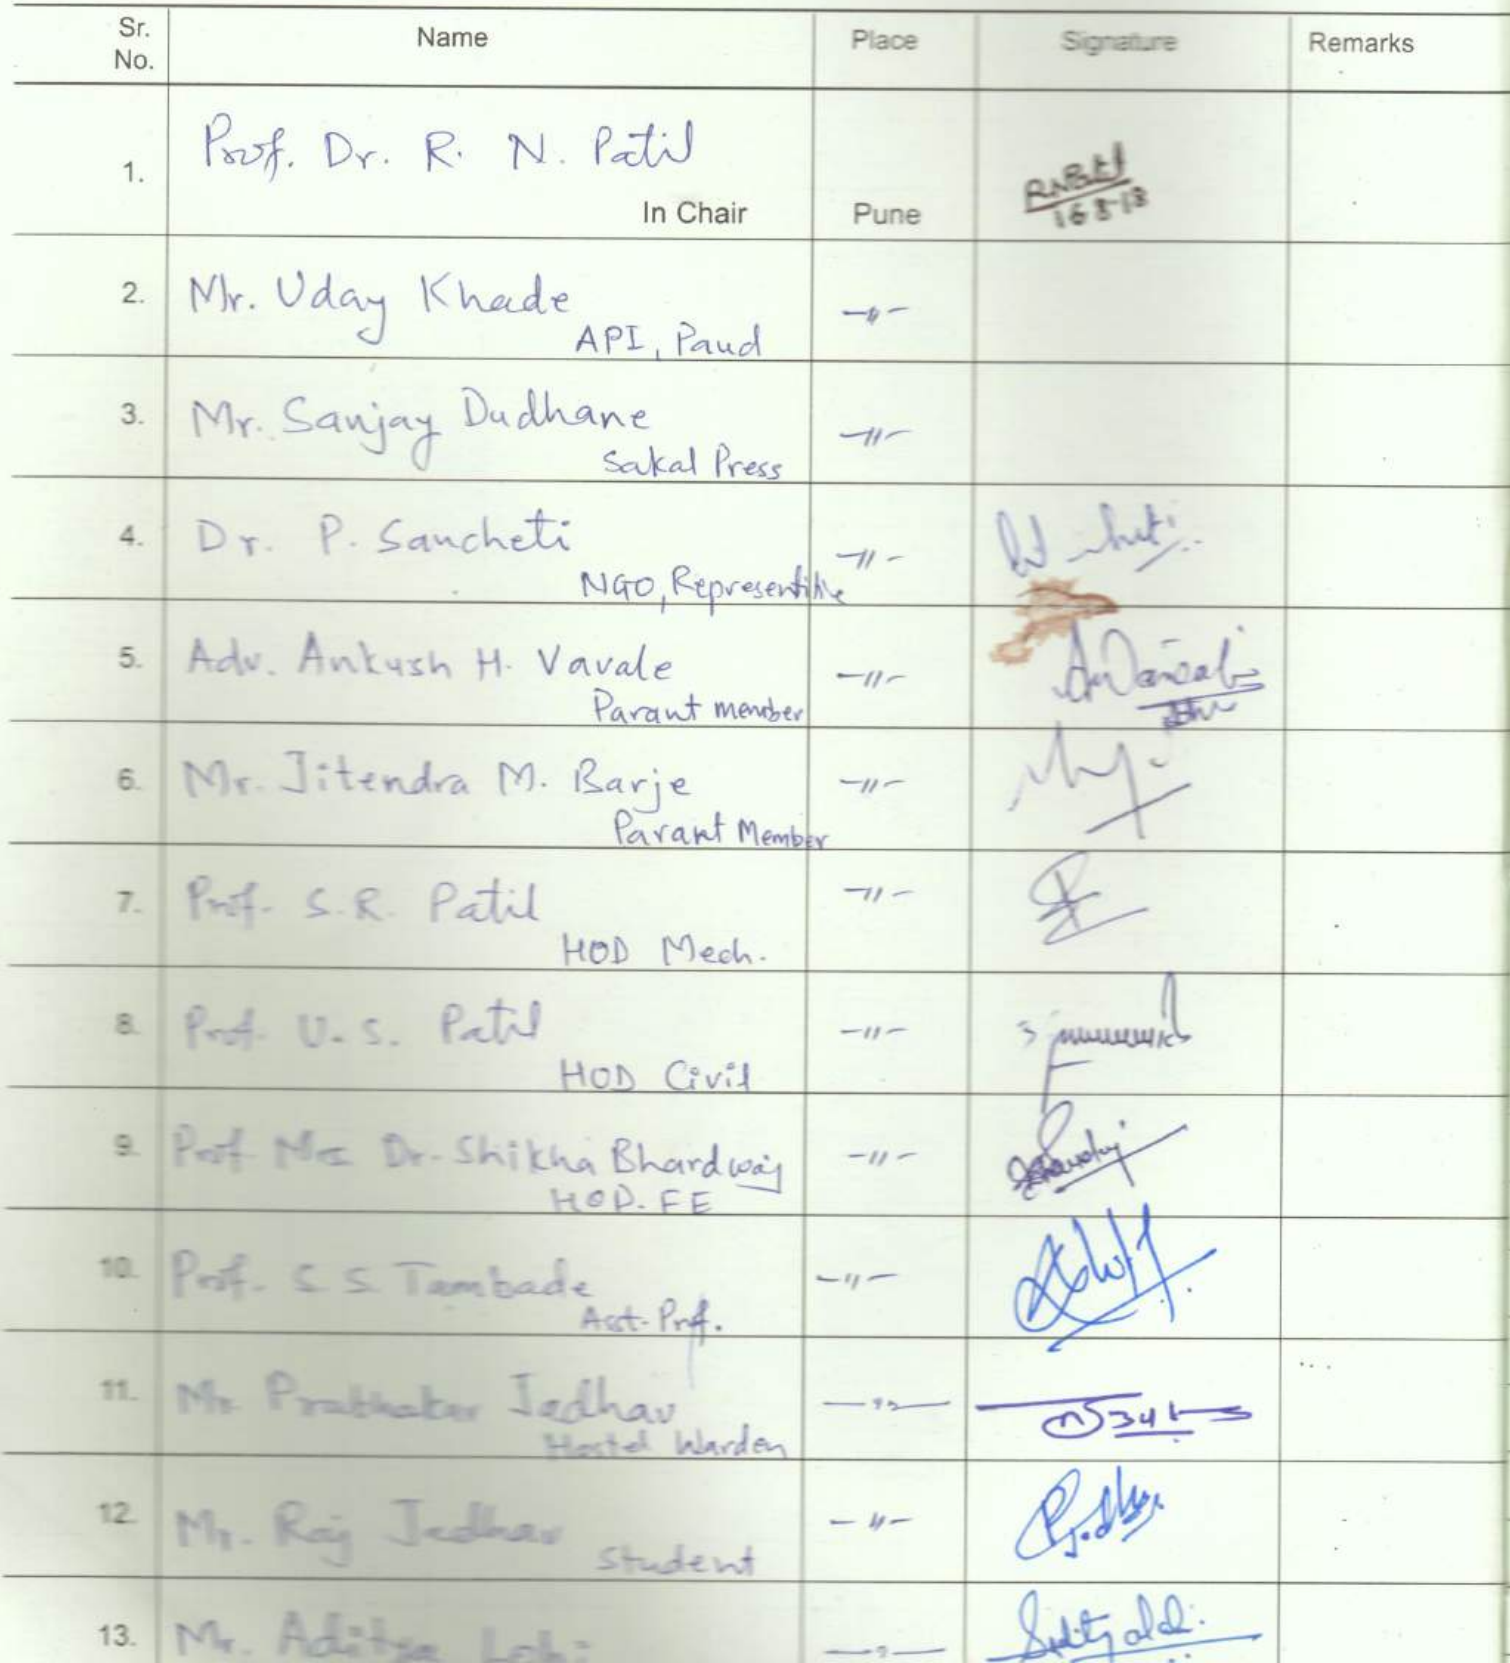 Sr. No. Name Place Signature Remarks
1. Prof. Dr. R. N. Patil
In Chair Pune RNPatil
16-8-18
2. Mr. Uday Khade -〃-
API, Paud
3. Mr. Sanjay Dudhane -〃-
Sakal Press
4. Dr. P. Sancheti -〃-
NGO, Representitive
5. Adv. Ankush H. Vavale -〃-
Parant member
6. Mr. Jitendra M. Barje -〃-
Parant Member
7. Prof. S.R. Patil -〃-
HOD Mech.
8. Prof. U.S. Patil -〃-
HOD Civil
9. Prof Mrs Dr. Shikha Bhardwaj -〃-
HOD. FE
10. Prof. S S Tambade -〃-
Asst. Prof.
11. Mr Jadhav -〃-
Hostel Warden
12. Mr. Raj Jadhav -〃-
Student
13. Mr. Aditya -〃-